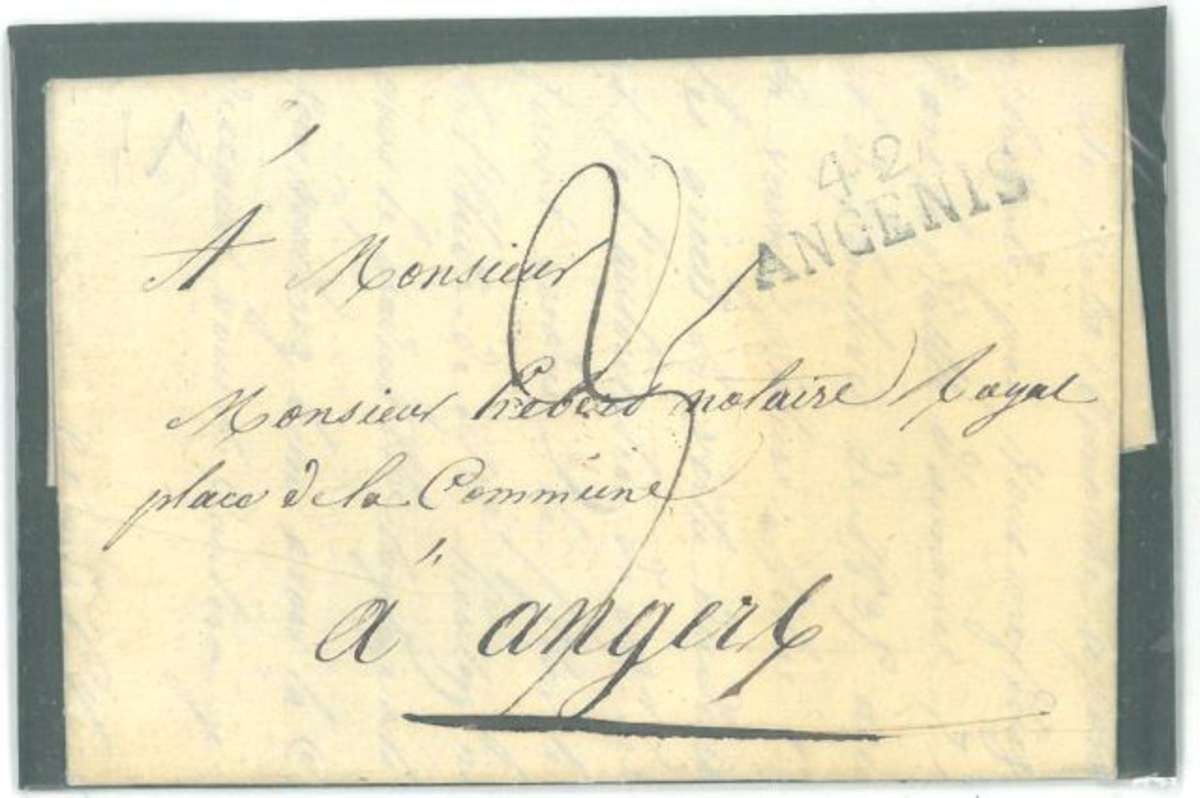 42
ANCENIS
A Monsieur
2
Monsieur hebert notaire Royal
place de la Commune
à angers